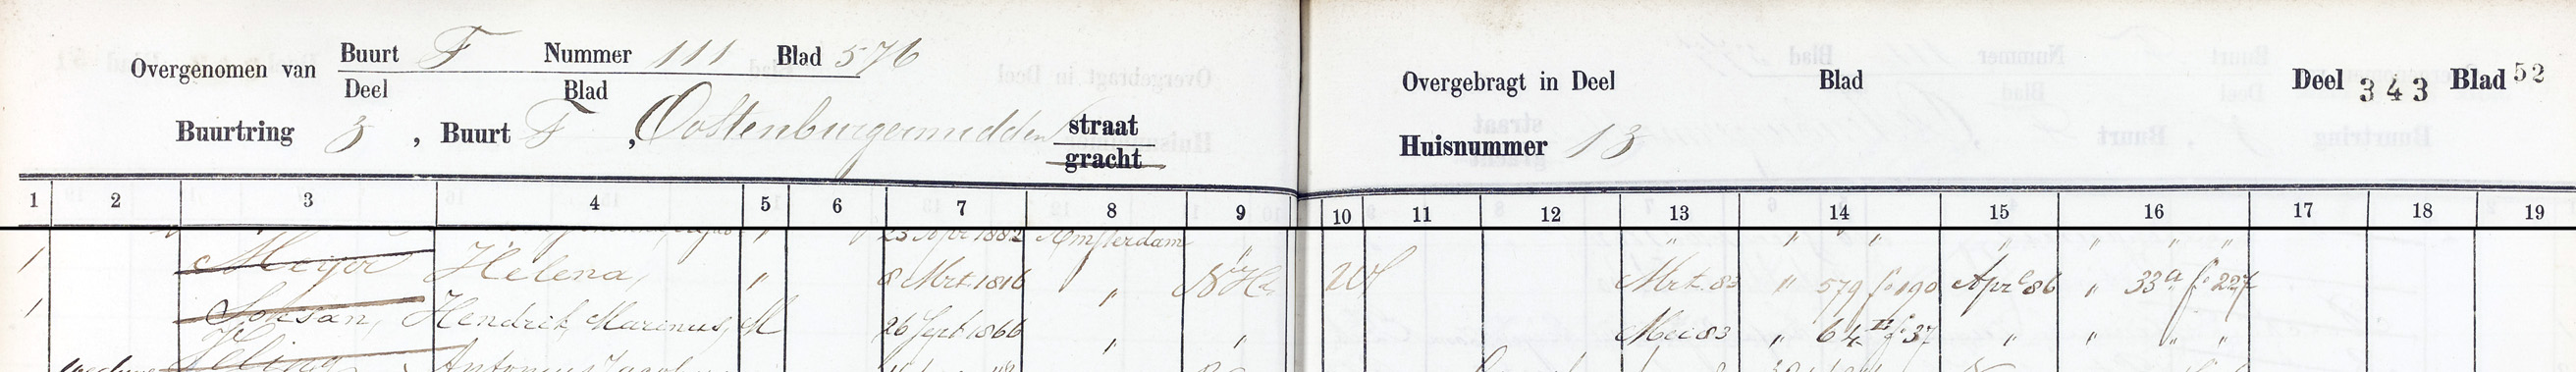 Overgenomen van Buurt F Nummer 111 Blad 576
Deel Blad
Buurtring 3, Buurt F, Oostenburgermidden straat
gracht
Overgebragt in Deel Blad Deel 343 Blad 52
Huisnummer 13
1 2 3 4 5 6 7 8 9 10 11 12 13 14 15 16 17 18 19
23 Apr 1882 Amsterdam " " " " " " " "
1 Meyer Helena, " 8 Mrt. 1816 " N H. W Mrt. 83 " 579 fo 190 Apr 86 " 33a fo 227
1 Hendrik Marinus, M 26 Sept 1866 " " Mei 83 " 64 II fo 37 " " " "
Antonius Jacob